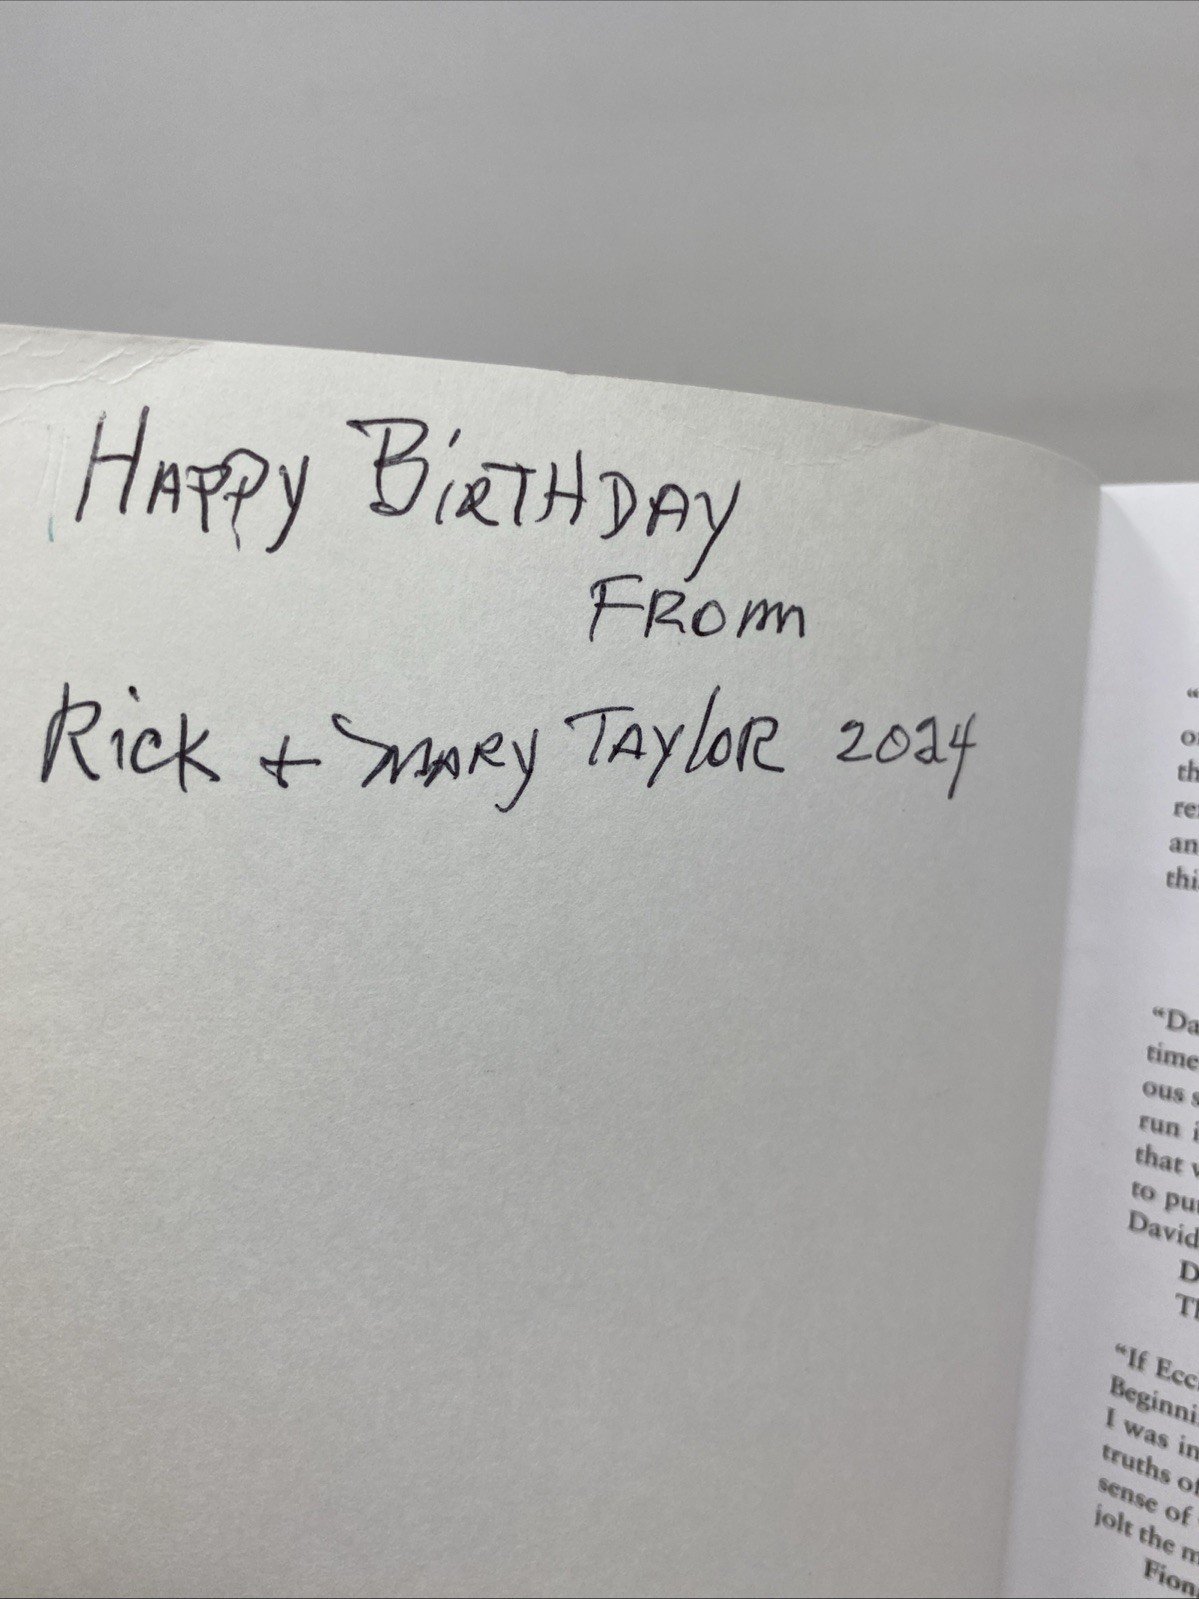 Happy Birthday
From
Rick + Mary Taylor 2024
“
th
an
“Da
time
ous s
run i
that v
to pu
David
D
“If Ecc
Beginni
I was in
truths of
sense of
jolt the m
Fiona